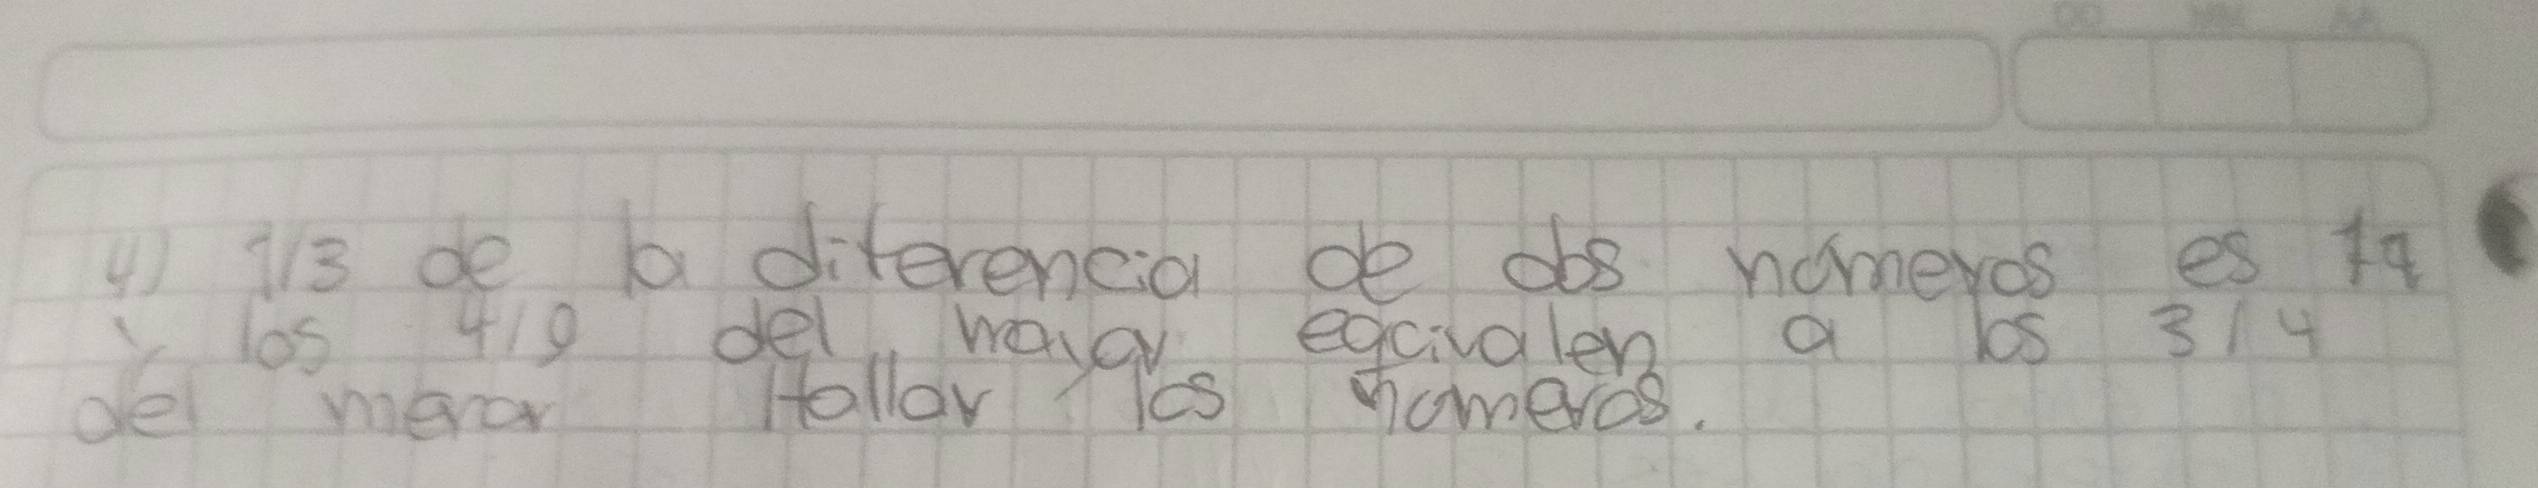 4) 1/3 de la diferencia de dos números es 14
y los 4/9 del mayor eqcivalen a los 3/4
del menor Hallar los nomeros.